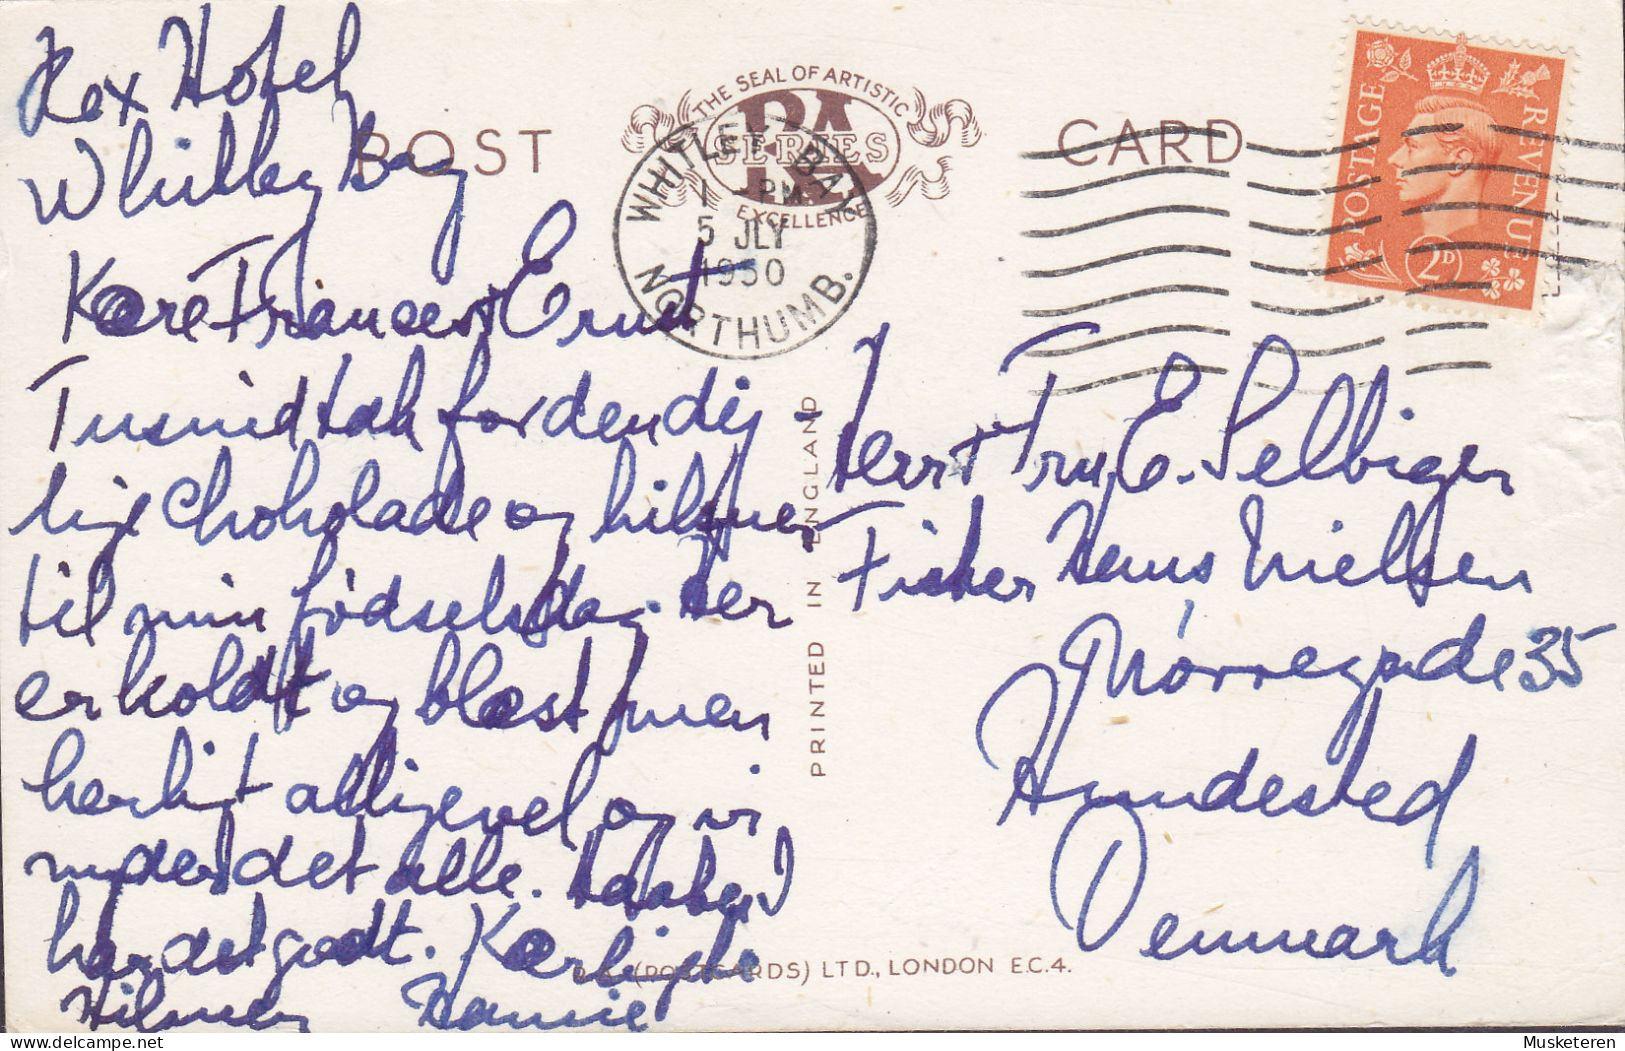 Rex Hotel
Whitley Bay
POST CARD
THE SEAL OF ARTISTIC
RA
SERIES
EXCELLENCE
WHITLEY BAY
1 PM
5 JLY
1950
NORTHUMB.
POSTAGE REVENUE
2D
Kære Frances + Ernst
Tusind tak for den dej
lige Chokolade og hilsner
til min fødselsdag. Her
er koldt og blæst men
herligt alligevel og vi
nyder det alle. Haaber I
har det godt. Kærligste
Hilsner Hannie
Herr + Fru E. Selbiger
Fisker Hans Nielsen
Nørregade 35
Hundested
Denmark
PRINTED IN ENGLAND
R.A. (POSTCARDS) LTD., LONDON E.C.4.
Musketeren
delcampe.net